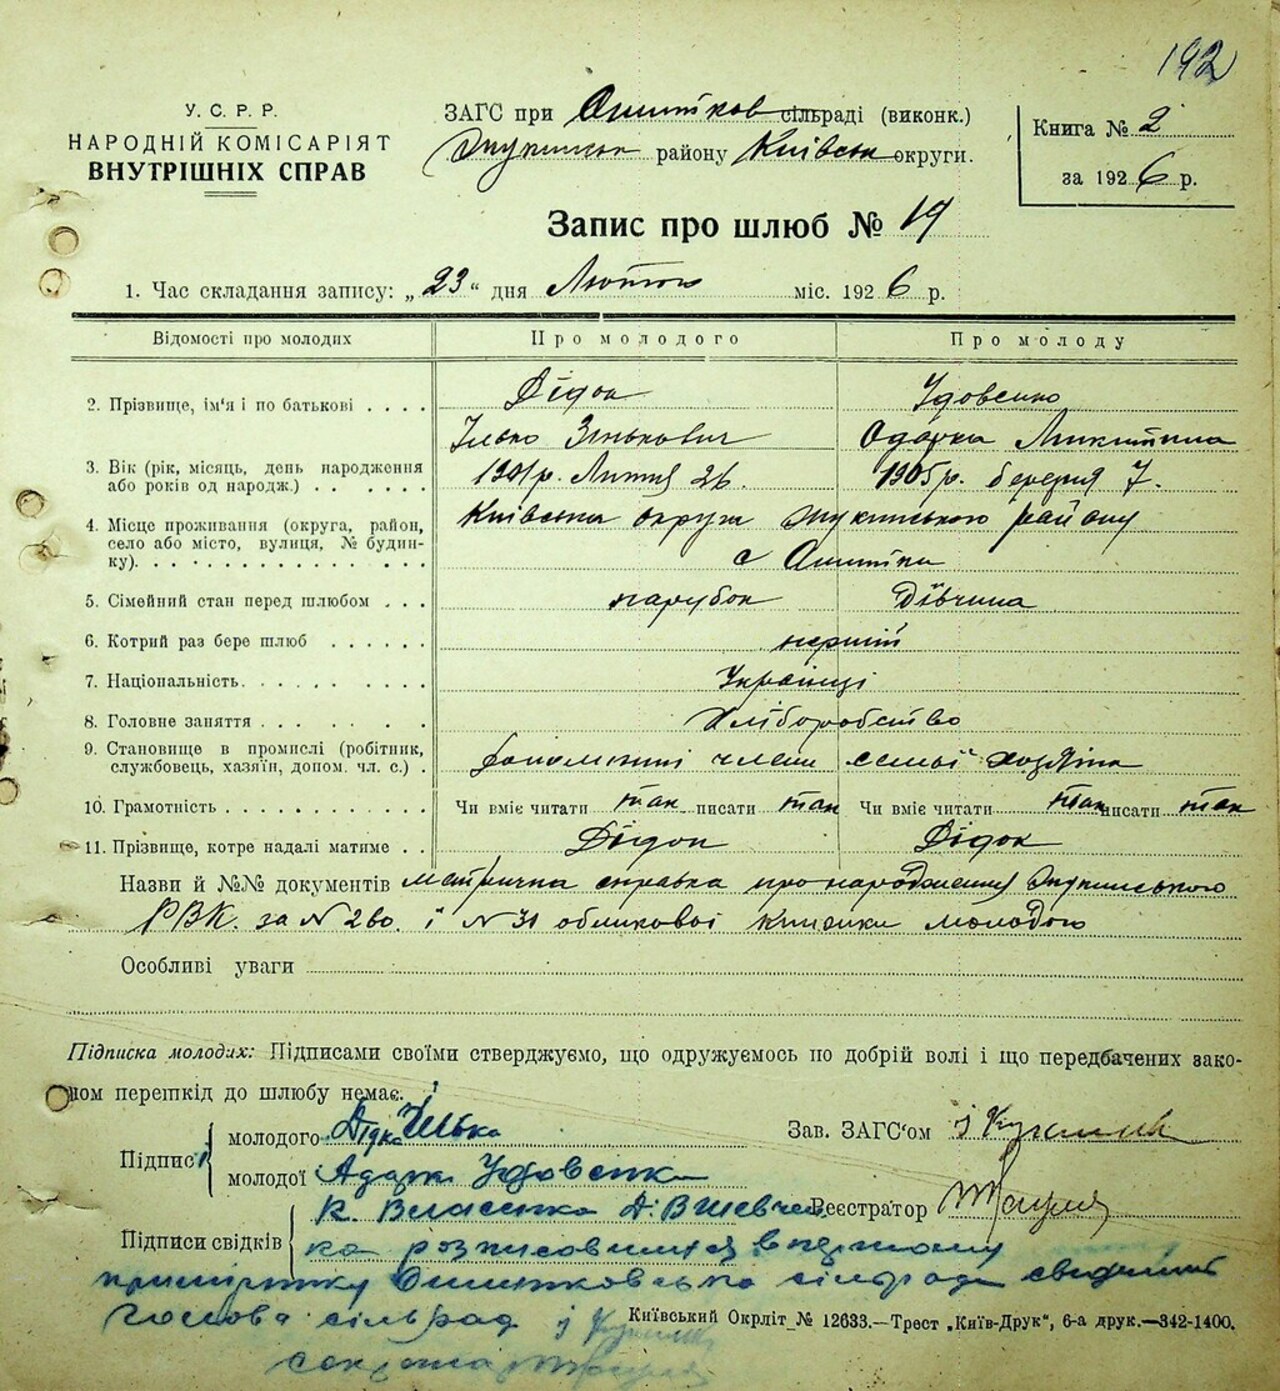 192
У. С. Р. Р.
НАРОДНІЙ КОМІСАРІЯТ
ВНУТРІШНІХ СПРАВ
ЗАГС при сільраді (виконк.)
району Київськ округи.
Книга № 2
за 1926 р.
Запис про шлюб № 19
1. Час складання запису: „23“ дня Лютого міс. 1926 р.
Відомості про молодих Про молодого Про молоду
2. Прізвище, ім‘я і по батькові . . . . Дідок Удовенко
Ілько Зінькович Одарка Микитина
3. Вік (рік, місяць, день народження
або років од народж.) . . . . . . 1901р. Лютня 26. 1905р. березня 7.
4. Місце проживання (округа, район,
село або місто, вулиця, № будин-
ку). Київська округи району
с
5. Сімейний стан перед шлюбом . . . парубок Дівчина
6. Котрий раз бере шлюб . . . . . . перший
7. Національність. . . . . . . . . . Українці
8. Головне заняття . . . . . . . . Хліборобство
9. Становище в промислі (робітник,
службовець, хазяїн, допом. чл. с.) . члени семьї хозяїна
10. Грамотність . . . . . . . . . . . Чи вміє читати так писати так Чи вміє читати так писати так
11. Прізвище, котре надалі матиме . . Дідок Дідок
Назви й №№ документів метрична справка про народження
РВК. за N 260. і N 31 обликової книжки молодого
Особливі уваги
Підписка молодих: Підписами своїми стверджуємо, що одружуємось по добрій волі і що передбачених зако-
ном перешкід до шлюбу немає.
Підпис молодого Дідка Ілька
молодої Удовенко
Зав. ЗАГС‘ом
Реєстратор
Підписи свідків К. Власенко Д. Шевчен
ка розписовшихся в першому
примірнику сільради свидчит
Голова сільрад
Київський Окрліт № 12633.—Трест „Київ-Друк“, 6-а друк.—342-1400.